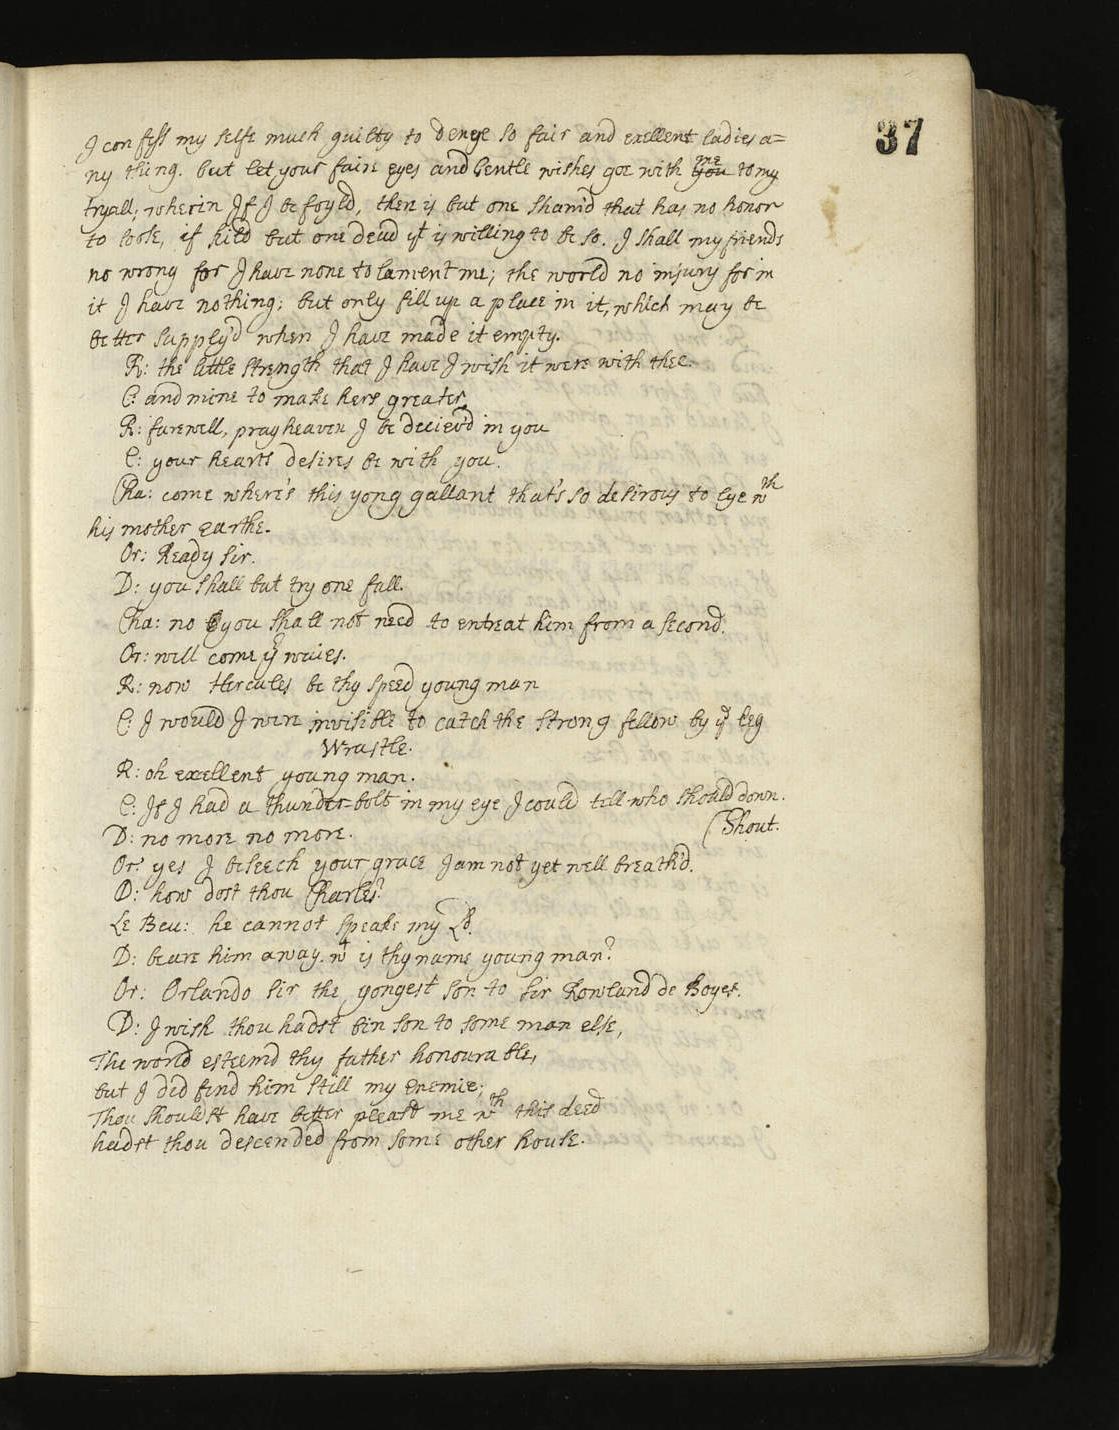 37
I confess my selfe much guilty to denye so fair and exellent ladies a=
ny thing. but let your faire eyes and Gentle wishes goe with you me to my
tryall; wherin If I be foyld, ther is but one sham'd that has no honor
to loose, if kild but one dead yt is willing to be so. I shall my friends
no wrong for I have none to lament me; the world no injury for in
it I have nothing: but only fill up a place in it, which may be
better supply'd when I have made it empty.
R: the little strength that I have I wish it were with thee.
C: and mine to make hers greater,
R: farewell, pray heaven I be deciev'd in you
C: your hearts desires be with you.
Cha: come where's this yong gallant that's so desirous to lye wth
his mother earthe.
Or: Ready Sir.
D: you shall but try one fall.
Cha: no you shall not need to entreat him from a second.
Or: well come yr waies.
R: now Hercules be thy speed young man
C: I would I were invisible to catch the strong fellow by ye leg
Wrastle.
R: oh exellent young man.
C: If I had a thunder-bolt in my eye I could tell who should down.
D: no more no more. (Shout.
Or: yes I beseech your grace I am not yet well breath'd.
D: how dost thou Charles?
Le Beu: he cannot speake my Ld.
D: beare him away. wt is thy name young man?
Or: Orlando Sir the yongest son to Sir Rowland de Boyes.
D: I wish thou hadst bin son to some man else,
The world esteemd thy father honourable,
but I did find him still my Enemie;
Thou shouldst have better pleasd me wth this deed
hadst thou descended from some other house.